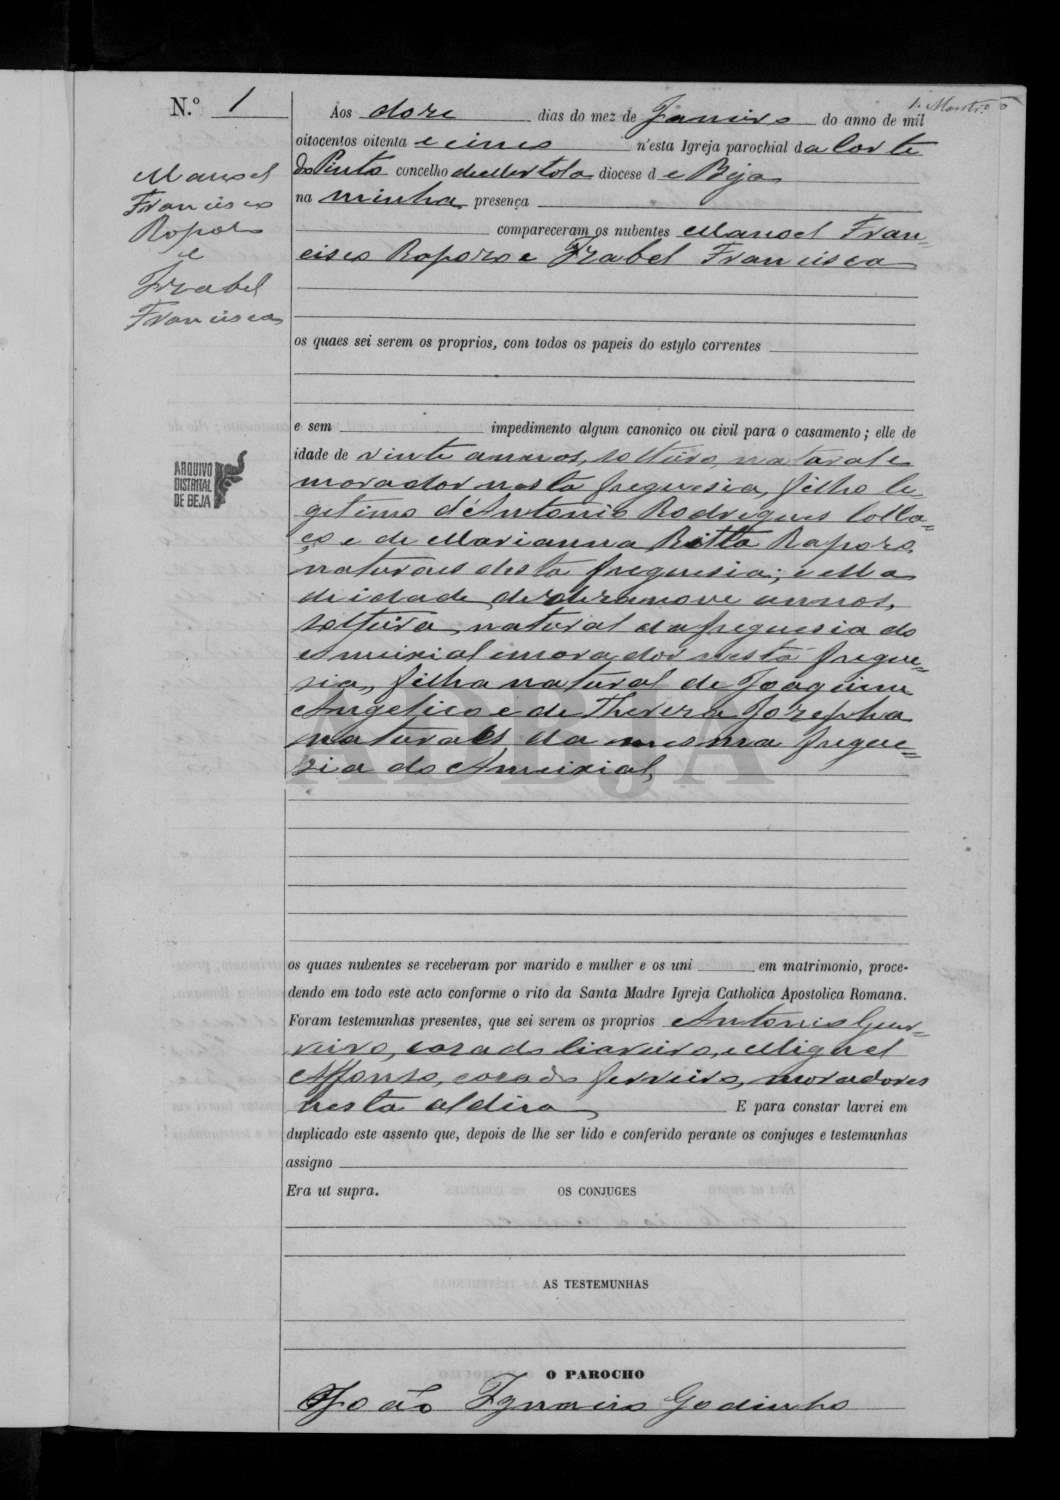 N.º 1
Aos doze dias do mez de Janeiro do anno de mil
oitocentos oitenta e cinco n'esta Igreja parochial da Corte
do Pinto concelho de Mertola diocese de Beja
na minha presença
compareceram os nubentes Manoel Fran-
cisco Rapozo e Izabel Francisca
Manoel
Francisco
Rapozo
e
Izabel
Francisca
os quaes sei serem os proprios, com todos os papeis do estylo correntes
e sem impedimento algum canonico ou civil para o casamento; elle de
idade de vinte annos, solteiro, natural e
morador nesta freguesia, filho le-
getimo d'Antonio Rodrigues Colla-
ço e de Marianna Ritta Rapozo,
naturaes desta freguesia; e ella
de idade dezanove annos,
solteira, natural da freguesia do
Ameixial e morador nesta fregue-
sia, filha natural de Joaquim
Angelico e de Thereza Jozepha
naturaes da mesma fregue-
sia do Ameixial,
ARQUIVO
DISTRITAL
DE BEJA
ADBJA
os quaes nubentes se receberam por marido e mulher e os uni em matrimonio, proce-
dendo em todo este acto conforme o rito da Santa Madre Igreja Catholica Apostolica Romana.
Foram testemunhas presentes, que sei serem os proprios Antonio Guer-
reiro, cazado, e Miguel
Affonso, cazado ferreiro, moradores
nesta aldeia, E para constar lavrei em
duplicado este assento que, depois de lhe ser lido e conferido perante os conjuges e testemunhas
assigno
Era ut supra. OS CONJUGES
AS TESTEMUNHAS
O PAROCHO
João Ignacio Godinho